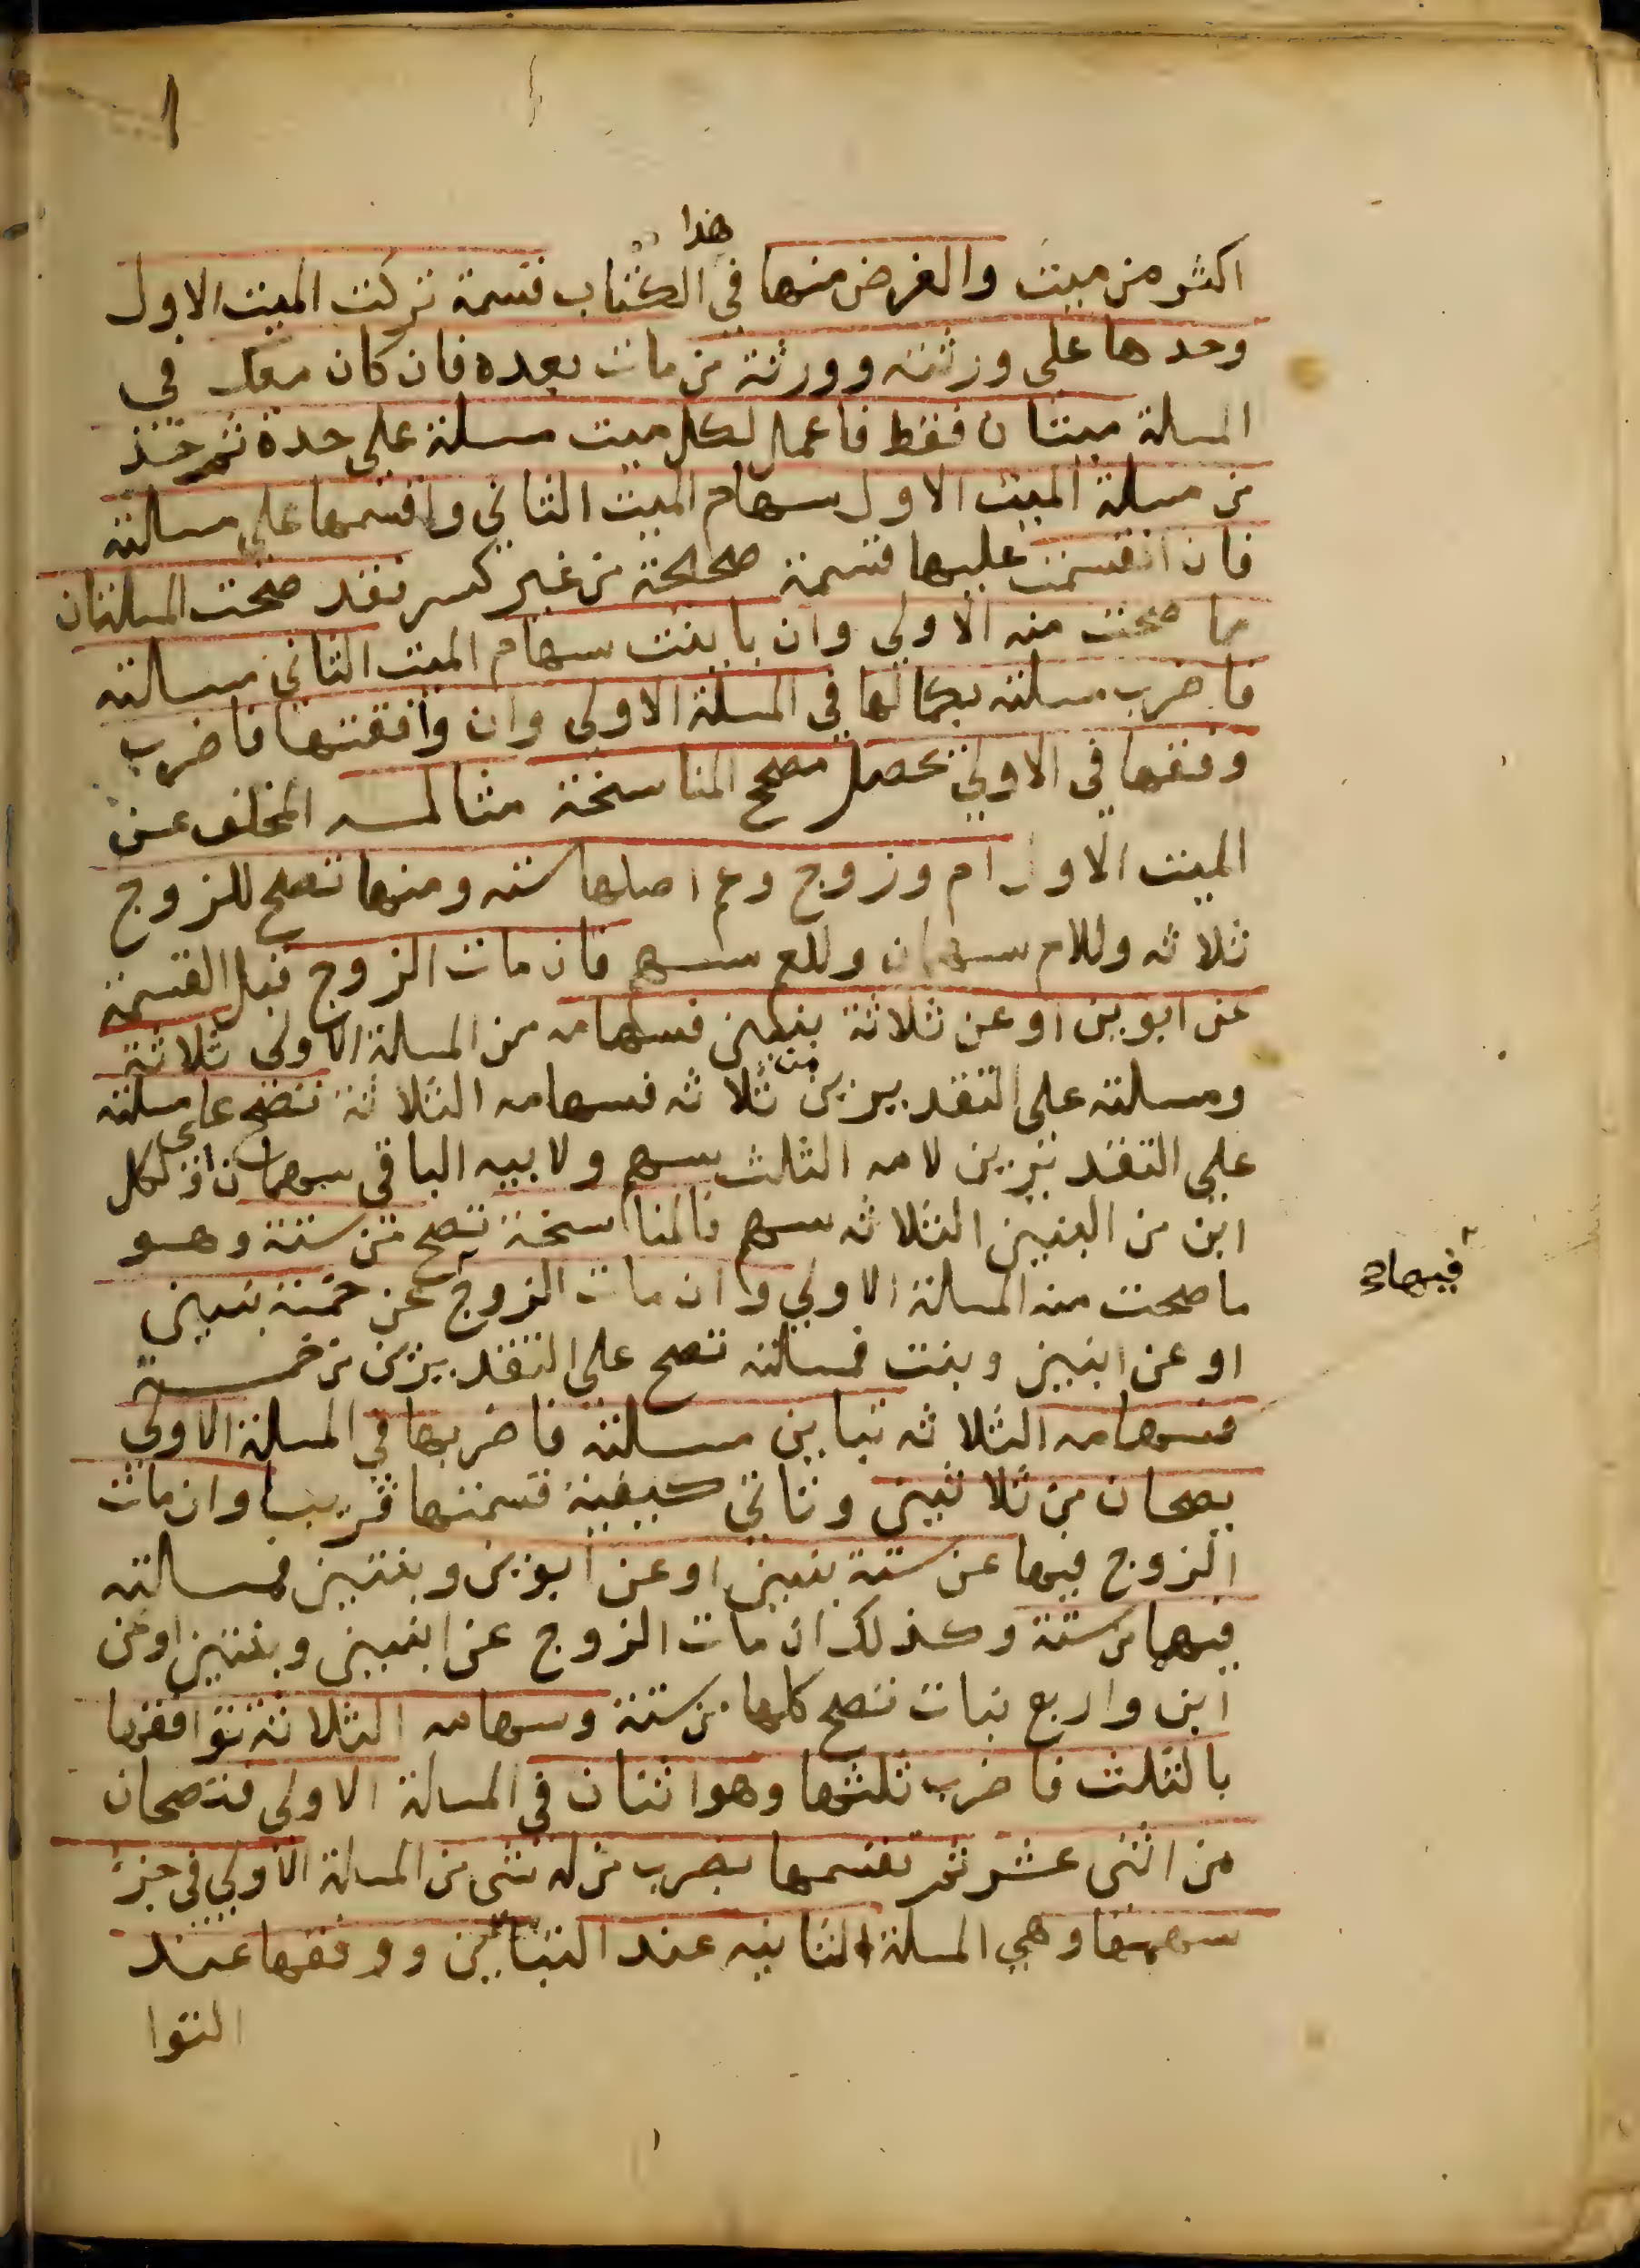 هذا
اكثر من ميت والغرض منها في الكتاب قسمة تركت الميت الاول
وحدها على ورثته وورثة من مات بعده فان كان معك في
المسلة ميتان فقط فاعمل لكل ميت مسلة على حدة ثم خذ
من مسلة الميت الاول سهام الميت الثاني واقسمها على مسالته
فان انقسمت عليها قسمة صحيحة من غير كسر فقد صحت المسلتان
مما صحت منه الاولى وان باينت سهام الميت الثاني مسالته
فاضرب مسلته بكمالها في المسلة الاولى وان وافقتها فاضرب
وفقها في الاولى يحصل مصحح المناسخة مثاله المخلف عن
الميت الاول ام وزوج وعم اصلها سته ومنها تصح للزوج
ثلاثه وللام سهمان وللعم سهم فان مات الزوج قبل القسمة
عن ابوين او عن ثلاثة بنين فسهامه من المسلة الاولى ثلاثة
ومسلته على التقديرين من ثلاثه فسهامه الثلاثة تصح على مسلته
على التقديرين لامه الثلث سهم ولابيه الباقي سهمان او لكل
ابن من البنين الثلاثه سهم فالمناسخة تصح من ستة وهو
ما صحت منه المسلة الاولى وان مات الزوج عن خمسة بنين
فيها
او عن ابنين وبنت فمسلته تصح على التقديرين من خمسة
فسهامه الثلاثه تباين مسلته فاضربها في المسلة الاولى
يصحان من ثلاثين وتاتي كيفية قسمتها قريبا وان مات
الزوج فيها عن ستة بنين او عن ابوين وبنتين فمسالته
فيهما من ستة وكذلك ان مات الزوج عن ابنين وبنتين او عن
ابن واربع بنات تصح كلها من ستة وسهامه الثلاثة توافقها
بالثلث فاضرب ثلثها وهو اثنان في المسلة الاولى فتصحان
من اثنى عشر ثم تقسمها بضرب من له شى من المسلة الاولى في جزء
سهمها وهي المسلة الثانيه عند التباين ووفقها عند
التوا